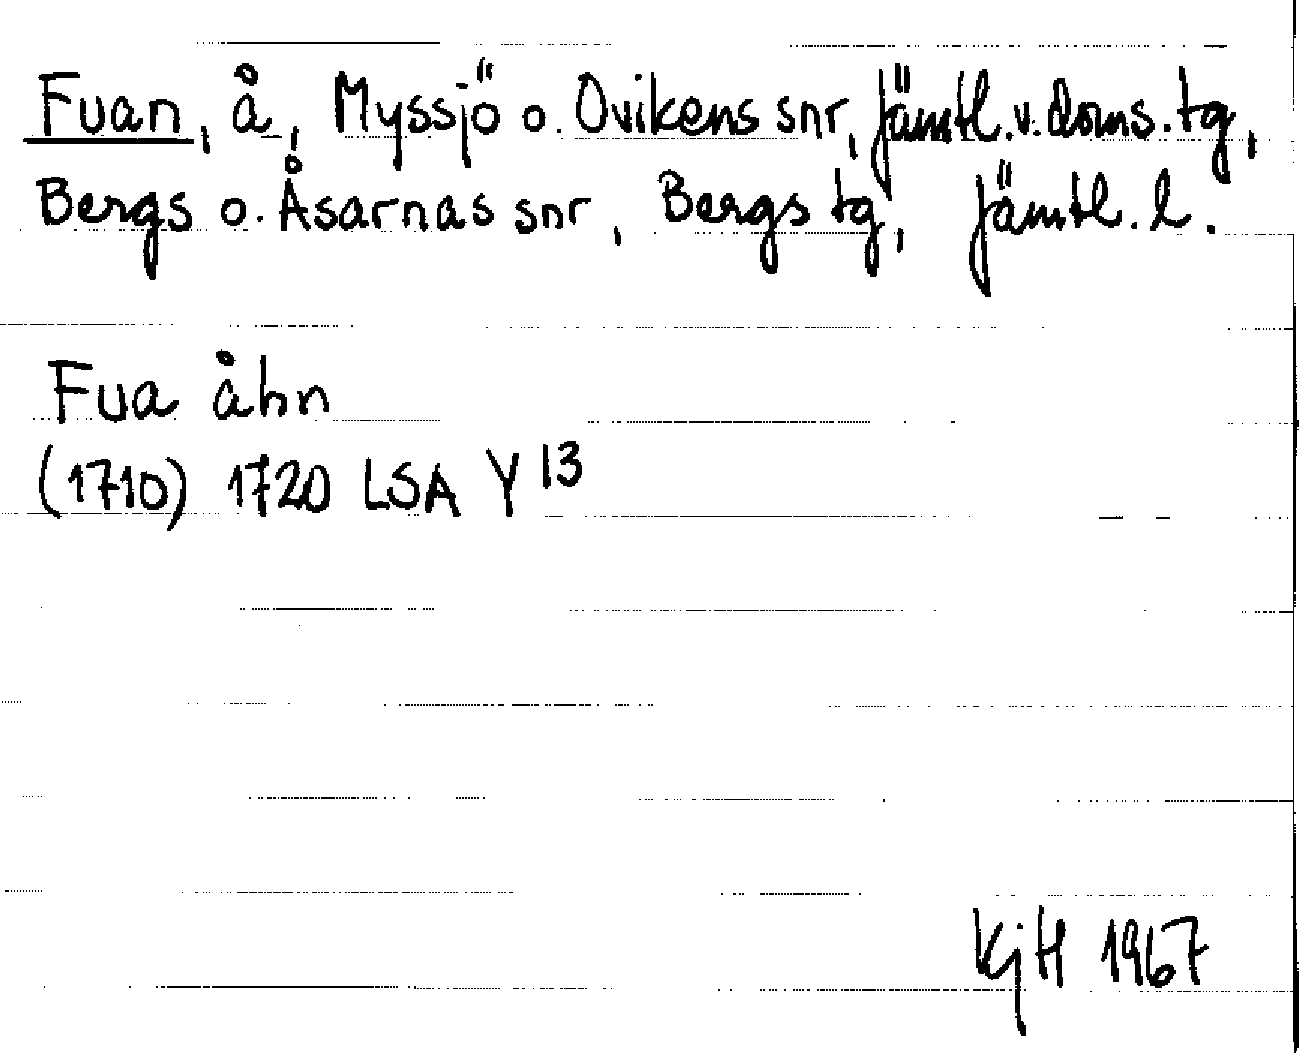 Fuan, å, Myssjö o. Ovikens snr, Jämtl. v. doms. tg,
Bergs o. Åsarnas snr, Bergs tg, Jämtl. l.
Fua åhn
(1710) 1720 LSA Y 13
KjH 1967